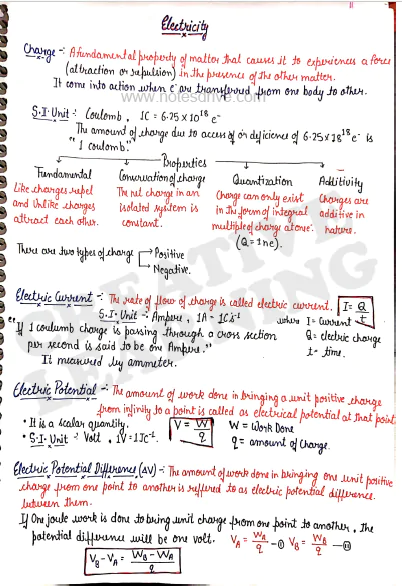 Electricity
Charge -: A fundamental property of matter that causes it to experiences a force
(attraction or repulsion) in the presence of the other matter.
It come into action when e⁻ are transferred from one body to other.
www.notesdrive.com
S.I Unit :- Coulomb, 1C = 6.25 × 10¹⁸ e⁻
The amount of charge due to access of or deficience of 6.25×10¹⁸ e⁻ is
"1 coulomb."
Properties
Fundamental
Like charges repel
and Unlike charges
attract each other.
Conservation of charge
The net charge in an
isolated system is
constant.
Quantization
Charge can only exist
in the form of integral
multiple of charge at one.
(Q = 1ne).
Additivity
Charges are
additive in
nature.
There are two types of charge
Positive
Negative.
CREATIVE LEARNING
Electric Current -: The rate of flow of charge is called electric current. I = Q/t
S.I. Unit :- Ampere, 1A = 1Cs⁻¹ where I = Current
"If 1 coulumb charge is passing through a cross section Q = electric charge
per second is said to be one Ampere." t = time.
It measured by ammeter.
Electric Potential -: The amount of work done in bringing a unit positive charge
from infinity to a point is called as electrical potential at that point.
• It is a scalar quantity. V = W/q W = Work Done
• S.I. Unit :- Volt, 1V = 1JC⁻¹. q = amount of Charge.
Electric Potential Difference (ΔV) -: The amount of work done in bringing one unit positive
charge from one point to another is reffered to as electric potential difference
between them.
If One joule work is done to bring unit charge from one point to another, the
potential difference will be one volt. V_A = W_A/q -① V_B = W_B/q -②
V_B - V_A = W_B - W_A/q